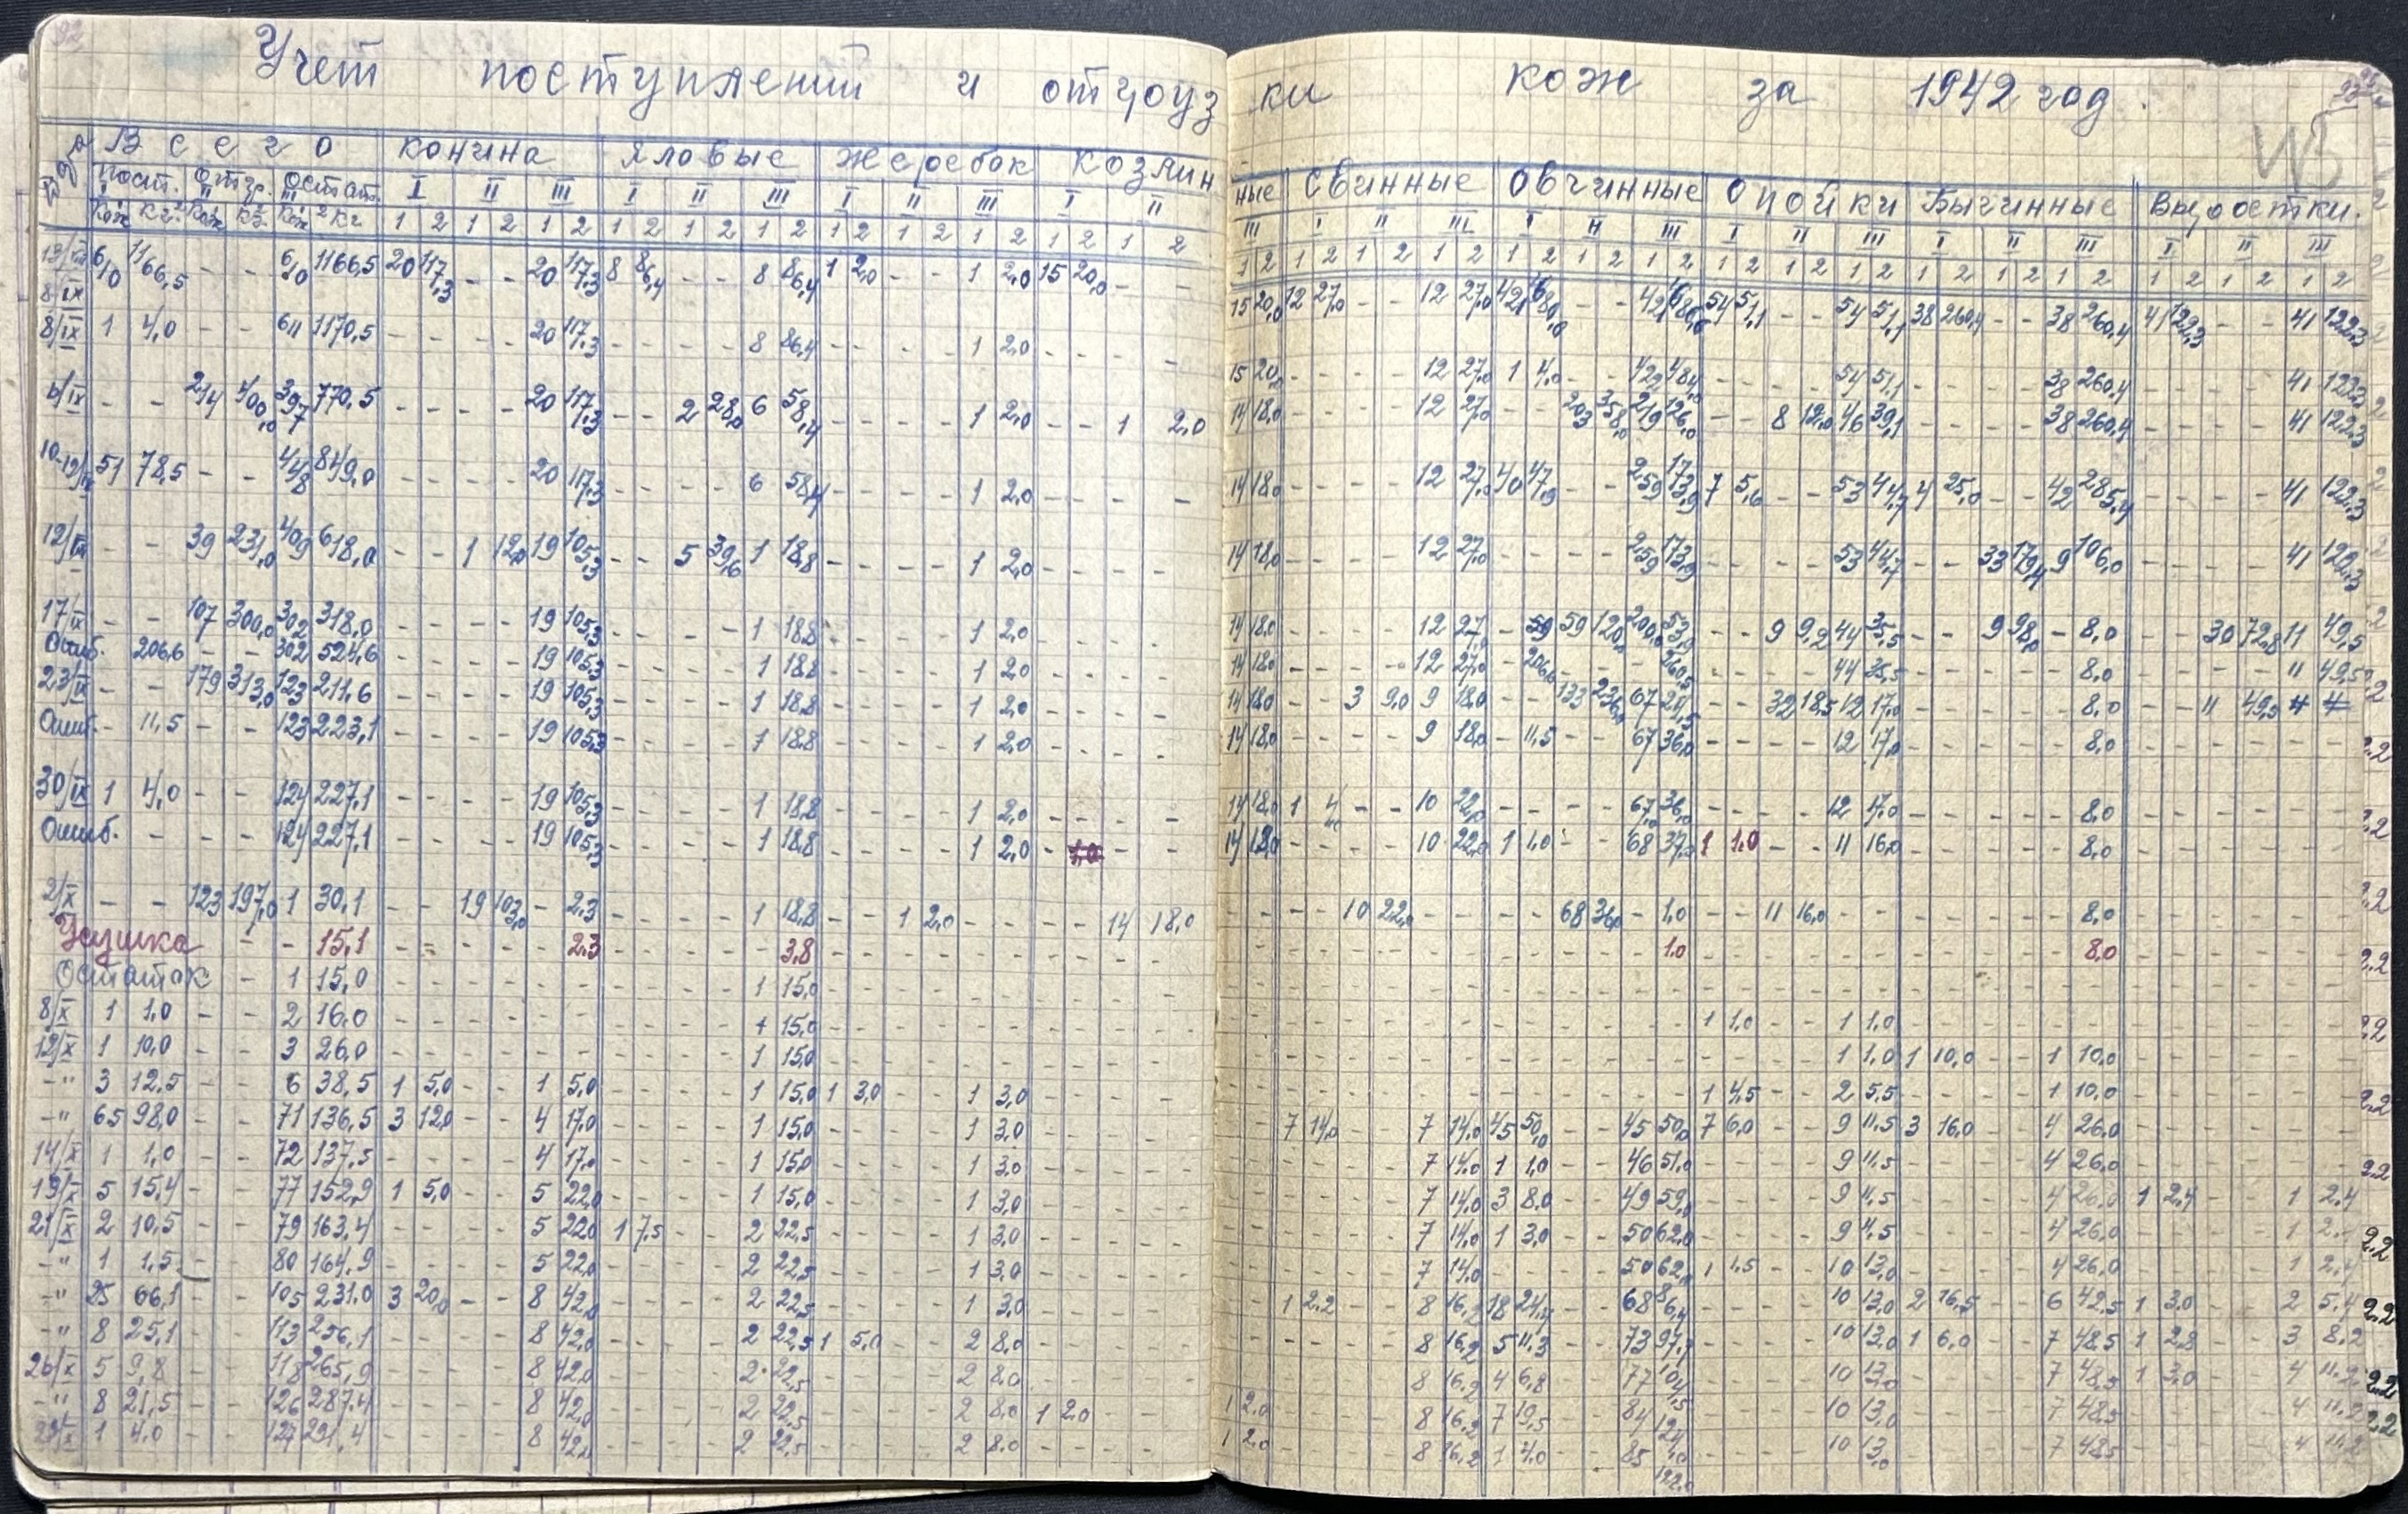 Учет поступлений и отгруз ки кож за 1942 год.
Всего конина яловые жеребок козлин ные свинные овчинные опойки Бычинные выростки.
пост. отгр. остат. I II III I II III I II III I II III I II III I II III I II III I II III I II III
кож кг кож кг кож кг 1 2 1 2 1 2 1 2 1 2 1 2 1 2 1 2 1 2 1 2 1 2 1 2 1 2 1 2 1 2 1 2 1 2 1 2 1 2 1 2 1 2 1 2 1 2 1 2 1 2 1 2 1 2
610 1166,5 - - 610 1166,5 20 117,3 - - 20 117,3 8 86,4 - - 8 86,4 1 2,0 - - 1 2,0 15 20,0 - - 15 20,0 12 27,0 - - 12 27,0 421 - - 421 54 51,1 - - 54 51,1 38 260,4 - - 38 260,4 41 122,3 - - 41 122,3
8/IX 1 4,0 - - 611 1170,5 - - - - 20 117,3 - - - - 8 86,4 - - - - 1 2,0 - - - - 15 20,0 - - - - 12 27,0 1 4,0 - - 422 484,0 - - - - 54 51,1 38 260,4 41 122,3
- - 214 400,0 397 770,5 - - - - 20 117,3 - - 2 28,0 6 58,4 - - - - 1 2,0 - - 1 2,0 14 18,0 - - - - 12 27,0 - - 203 358,0 219 126,0 - - 8 12,0 46 39,1 38 260,4 - - - - 41 122,3
51 78,5 - - 448 849,0 - - - - 20 117,3 - - - - 6 58,4 - - - - 1 2,0 - - - - 14 18,0 - - - - 12 27,0 40 47,9 - - 259 173,9 7 5,6 - - 53 44,7 4 25,0 - - 42 285,4 - - - - 41 122,3
- - 39 231,0 409 618,0 - - 1 12,0 19 105,3 - - 5 39,6 1 18,8 - - - - 1 2,0 - - - - 14 18,0 - - - - 12 27,0 - - - - 259 173,9 - - - - 53 44,7 - - 33 179,4 9 106,0 - - - - 41 122,3
17/IX - - 107 300,0 302 318,0 - - - - 19 105,3 - - - - 1 18,8 - - - - 1 2,0 - - - - 14 18,0 - - - - 12 27,0 - 59 120,0 200,0 53,9 - - 9 9,2 44 35,5 - - 9 98,0 - 8,0 - - 30 72,8 11 49,5
Ошиб. 206,6 - - 302 524,6 - - - - 19 105,3 - - - - 1 18,8 - - - - 1 2,0 - - - - 14 18,0 - - - - 12 27,0 - 206,6 - - 260,5 - - - - 44 35,5 - - - - 8,0 - - - - 11 49,5
23/IX - - 179 313,0 123 211,6 - - - - 19 105,3 - - - - 1 18,8 - - - - 1 2,0 - - - - 14 18,0 - - 3 9,0 9 18,0 - - 133 236,0 67 24,5 - - 32 18,5 12 17,0 - - - - 8,0 - - 11 49,5
Ошиб. - 11,5 - - 123 223,1 - - - - 19 105,3 - - - - 1 18,8 - - - - 1 2,0 - - - - 14 18,0 - - - - 9 18,0 - 11,5 - - 67 36,0 - - - - 12 17,0 - - - - 8,0
30/IX 1 4,0 - - 124 227,1 - - - - 19 105,3 - - - - 1 18,8 - - - - 1 2,0 - - - - 14 18,0 1 4 - - 10 22,0 - - - - 67,0 36,0 - - - - 12 17,0 - - - - 8,0
Ошиб. - - - - 124 227,1 - - - - 19 105,3 - - - - 1 18,8 - - - - 1 2,0 - 1,0 - - 14 18,0 - - - - 10 22,0 1 1,0 - - 68 37,0 1 1,0 - - 11 16,0 - - - - 8,0
2/X - - 123 197,0 1 30,1 - - 19 103,0 - 2,3 - - - - 1 18,8 - - 1 2,0 - - - - 14 18,0 - - - - 10 22,0 - - - - 68 36,0 - 1,0 - - 11 16,0 - - - - - - 8,0
Усушка - - 15,1 2,3 3,8 1,0 8,0
Остаток - 1 15,0 1 15,0
8/X 1 1,0 - - 2 16,0 1 15,0 1 1,0 - - 1 1,0
12/X 1 10,0 - - 3 26,0 1 15,0 1 1,0 1 10,0 - - 1 10,0
-" 3 12,5 - - 6 38,5 1 5,0 - - 1 5,0 - - - - 1 15,0 1 3,0 - - 1 3,0 1 4,5 - - 2 5,5 - - - - 1 10,0
-" 65 98,0 - - 71 136,5 3 12,0 - - 4 17,0 - - - - 1 15,0 - - - - 1 3,0 7 14,0 - - 7 14,0 45 50,0 - - 45 50,0 7 6,0 - - 9 11,5 3 16,0 - - 4 26,0
14/X 1 1,0 - - 72 137,5 - - - - 4 17,0 - - - - 1 15,0 - - - - 1 3,0 7 14,0 1 1,0 - - 46 51,0 - - - - 9 11,5 - - - - 4 26,0
19/X 5 15,4 - - 77 152,9 1 5,0 - - 5 22,0 - - - - 1 15,0 - - - - 1 3,0 7 14,0 3 8,0 - - 49 59,0 - - - - 9 11,5 - - - - 4 26,0 1 2,4 - - 1 2,4
21/X 2 10,5 - - 79 163,4 - - - - 5 22,0 1 7,5 - - 2 22,5 - - - - 1 3,0 7 14,0 1 3,0 - - 50 62,0 - - - - 9 11,5 - - - - 4 26,0
-" 1 1,5 - - 80 164,9 - - - - 5 22,0 - - - - 2 22,5 - - - - 1 3,0 7 14,0 - - - - 50 62,0 1 1,5 - - 10 13,0 - - - - 4 26,0 1 2,4
-" 25 66,1 - - 105 231,0 3 20,0 - - 8 42,0 - - - - 2 22,5 - - - - 1 3,0 1 2,2 - - 8 16,2 18 24,4 - - 68 86,4 - - - - 10 13,0 2 16,5 - - 6 42,5 1 3,0 - - 2 5,4
-" 8 25,1 - - 113 256,1 - - - - 8 42,0 - - - - 2 22,5 1 5,0 - - 2 8,0 8 16,2 5 11,3 - - 73 97,7 - - - - 10 13,0 1 6,0 - - 7 48,5 1 2,8 - - 3 8,2
26/X 5 9,8 - - 118 265,9 - - - - 8 42,0 - - - - 2 22,5 - - - - 2 8,0 8 16,2 4 6,8 - - 77 - - - - 10 13,0 - - - - 7 48,5 1 3,0 - - 4 11,2
-" 8 21,5 - - 126 287,4 - - - - 8 42,0 - - - - 2 22,5 - - - - 2 8,0 1 2,0 - - 1 2,0 - - - - 8 16,2 7 19,5 - - 84 - - - - 10 13,0 - - - - 7 48,5 - - - - 4 11,2
1 4,0 - - 127 291,4 - - - - 8 42,0 - - - - 2 22,5 - - - - 2 8,0 - - - - 1 2,0 - - - - 8 16,2 1 4,0 - - 85 - - - - 10 13,0 - - - - 7 48,5 - - - - 4 11,2